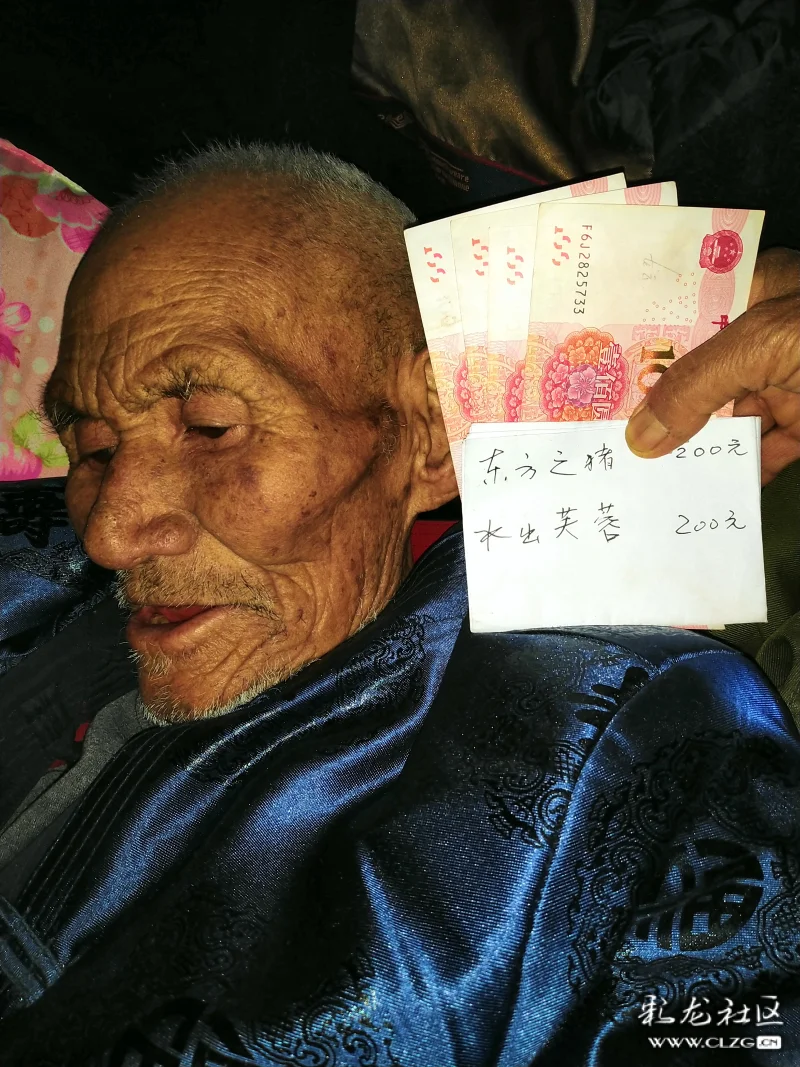 F6J2825733
中
壹佰
10
东方之猪 200元
水出芙蓉 200元
福
彩龙社区
WWW.CLZG.CN